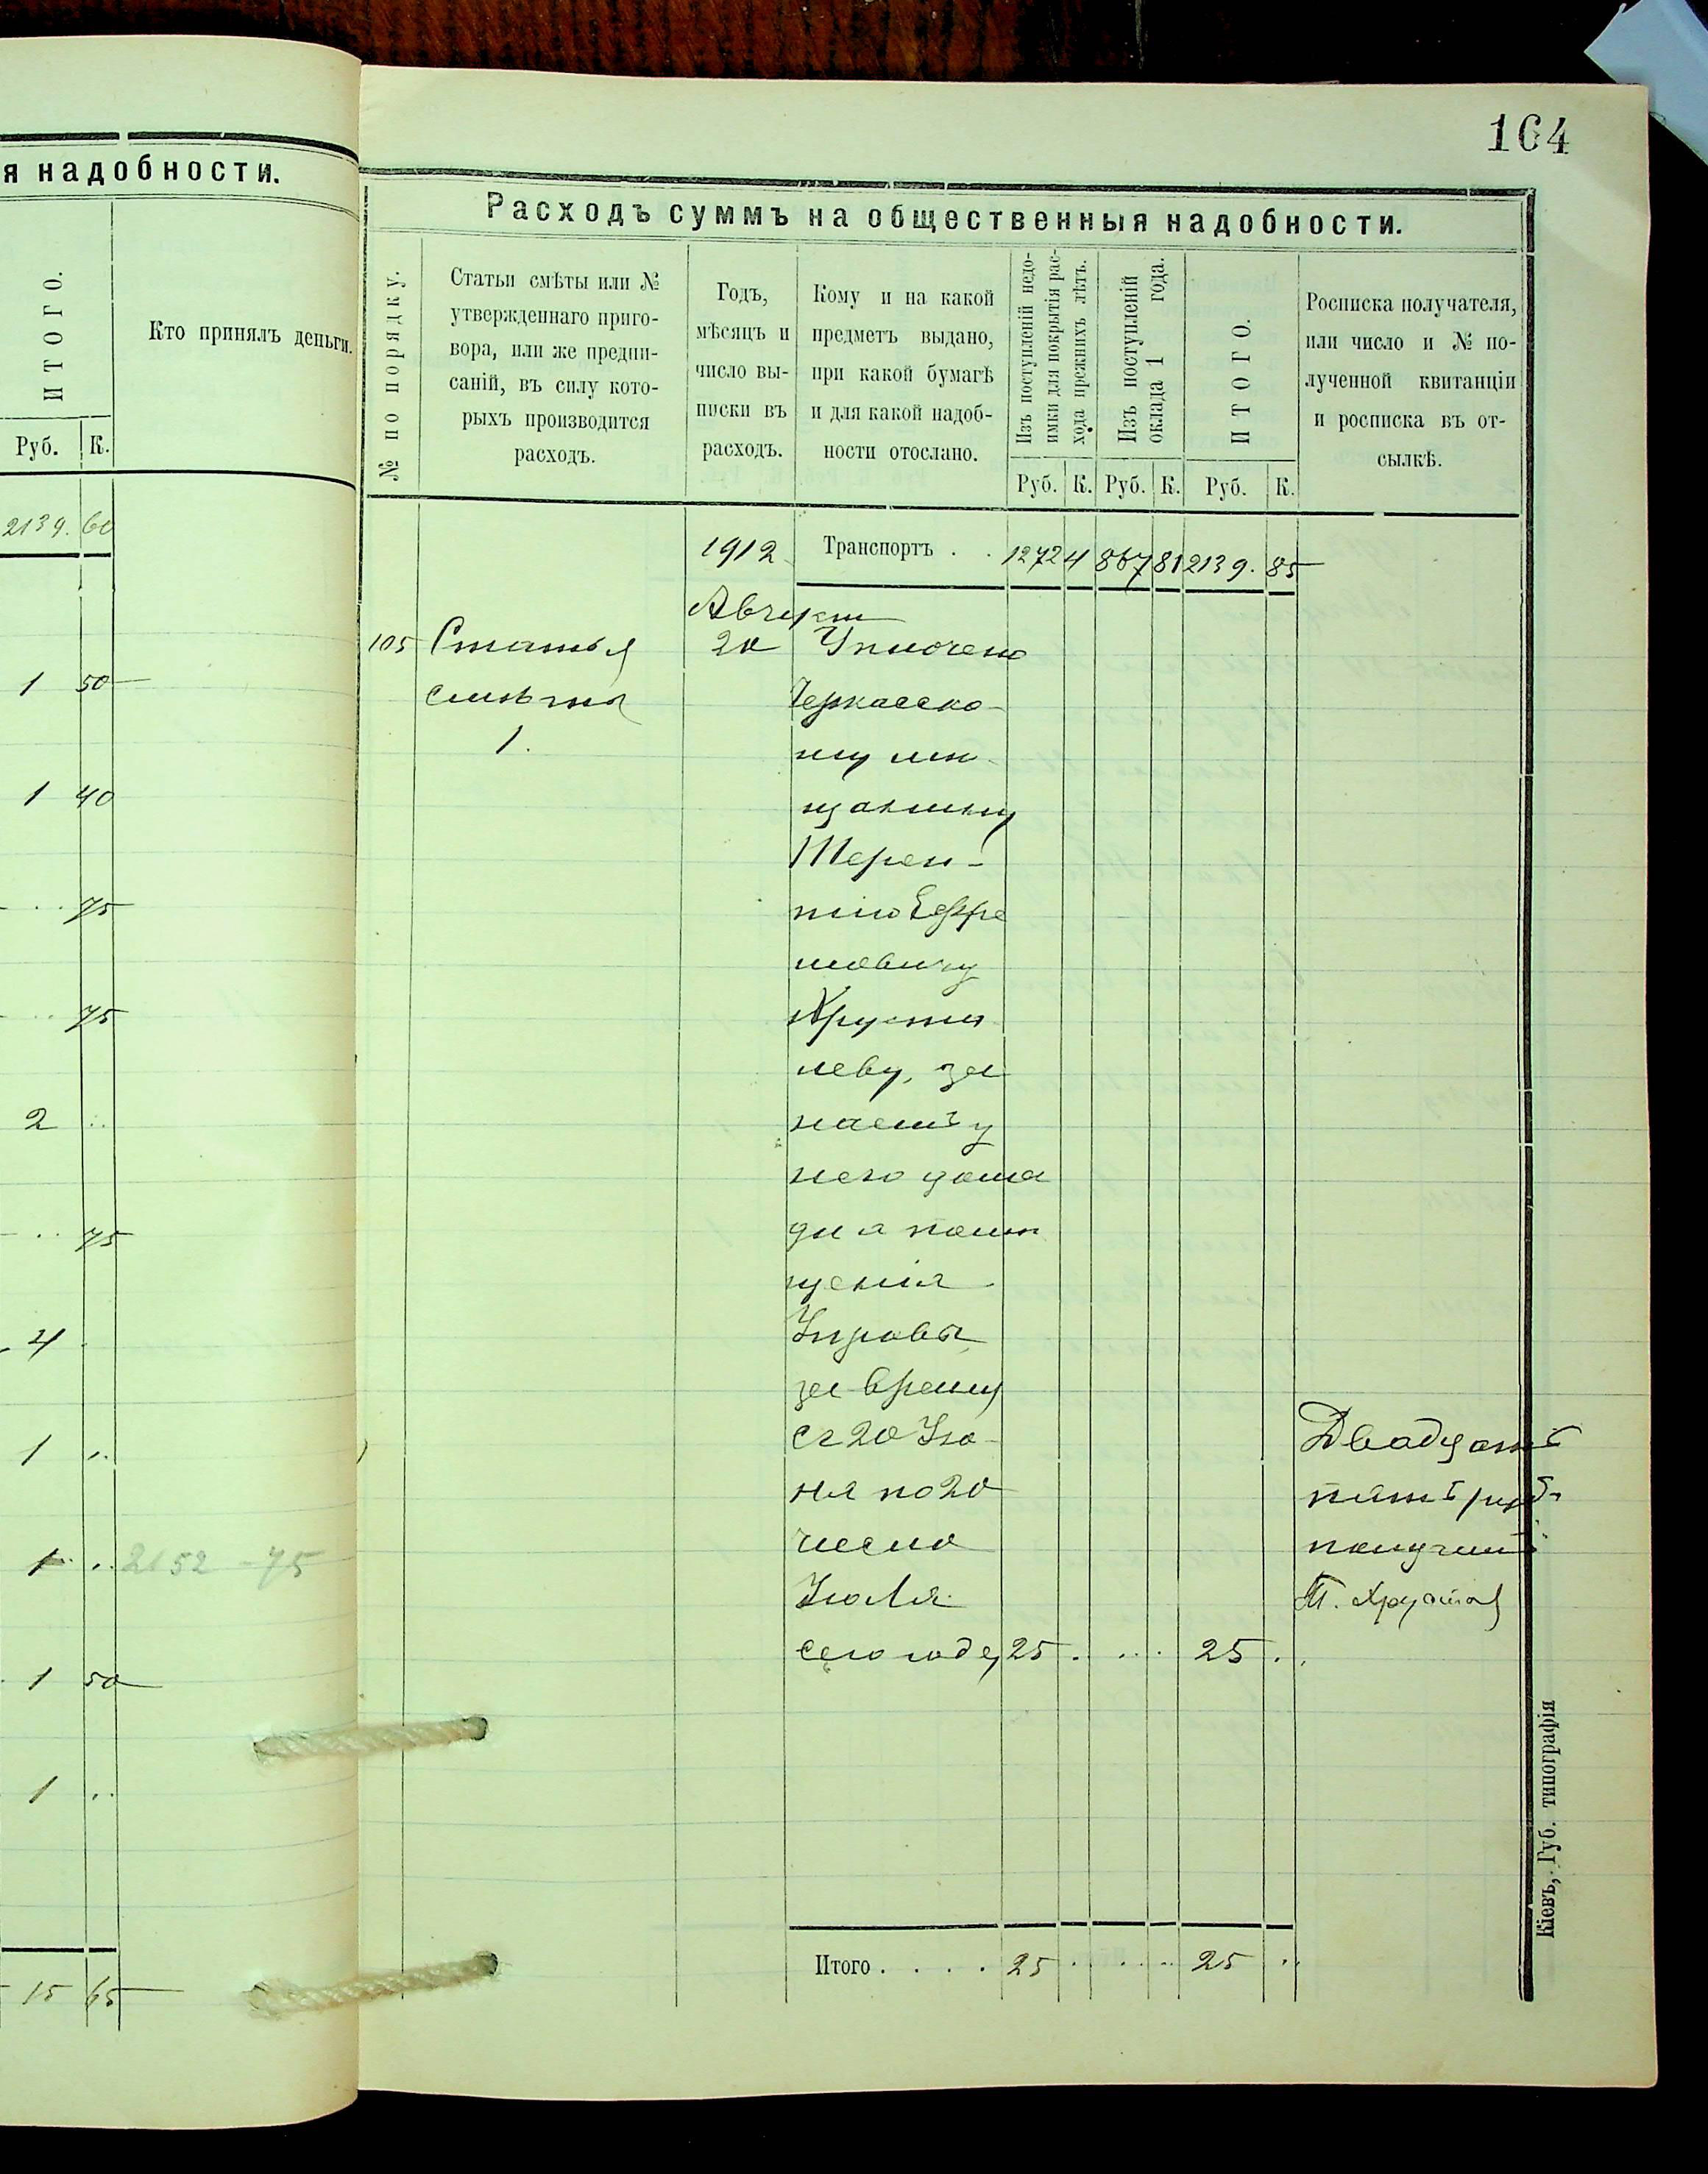 164
я надобности.
Расходъ суммъ на общественныя надобности.
ИТОГО.
Руб. К.
Кто принялъ деньги.
2139. 60
1 50
1 40
.. 75
.. 75
2 ..
.. 75
4
1 ..
1 .. 2152 - 75
1 50
1 ..
15 65
№ по порядку.
Статьи смѣты или №
утвержденнаго приго-
вора, или же предпи-
саній, въ силу кото-
рыхъ производится
расходъ.
Годъ,
мѣсяцъ и
число вы-
писки въ
расходъ.
Кому и на какой
предметъ выдано,
при какой бумагѣ
и для какой надоб-
ности отослано.
Изъ поступленій недо-
имки для покрытія рас-
хода прежнихъ лѣтъ.
Руб. К.
Изъ поступленій
оклада 1 года.
Руб. К.
ИТОГО.
Руб. К.
Росписка получателя,
или число и № по-
лученной квитанціи
и росписка въ от-
сылкѣ.
1912 Транспортъ . . 1272 4 867 81 2139. 85
Августъ
105 Статья 20 Уплочено
смѣты Черкасско-
1. му мѣ-
щанину
Терен-
тію Ефре
мовичу
Хруста
леву, за
наемъ у
него дома
для помѣ
щенія
Управы,
за время
съ 20 Ію-
ня по 20
число
Іюля
сего года 25 . ... 25 ..
Двадцать
пять руб.
получилъ
Т. Хрусталев
Итого . . . . 25 . ... 25 ..
Кіевъ, Губ. типографія